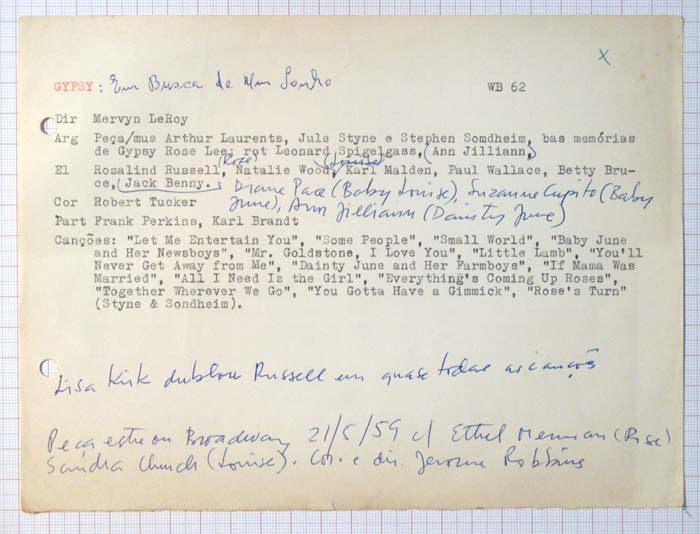 X
GYPSY: Em Busca de Um Sonho WB 62
Dir Mervyn LeRoy
Arg Peça/mus Arthur Laurents, Jule Styne e Stephen Somdheim, bas memórias
de Gypsy Rose Lee; rot Leonard Spigelgass, (Ann Jilliann,)
(Rose) (Louise)
El Rosalind Russell, Natalie Wood, Karl Malden, Paul Wallace, Betty Bru-
ce, Jack Benny. Diane Pace (Baby Louise), Suzanne Cupito (Baby
June), Ann Jilliann (Dainty June)
Cor Robert Tucker
Part Frank Perkins, Karl Brandt
Canções: "Let Me Entertain You", "Some People", "Small World", "Baby June
and Her Newsboys", "Mr. Goldstone, I Love You", "Little Lamb", "You'll
Never Get Away from Me", "Dainty June and Her Farmboys", "If Mama Was
Married", "All I Need Is the Girl", "Everything's Coming Up Roses",
"Together Wherever We Go", "You Gotta Have a Gimmick", "Rose's Turn"
(Styne & Sondheim).
Lisa Kirk dublou Russell em quase todas as canções
Peça estreou Broadway 21/5/59 c/ Ethel Merman (Rose)
Sandra Church (Louise). Cor. e dir. Jerome Robbins